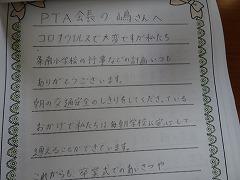 PTA会長の嶋さんへ
コロナウイルスで大変ですが私たち
小学校の行事などの計画いつも
ありがとうございます。
朝の交通安全のしきりをしてくださっている
おかげで私たちは毎朝学校に安心して
通えることができています。
これからも、卒業式でのあいさつや